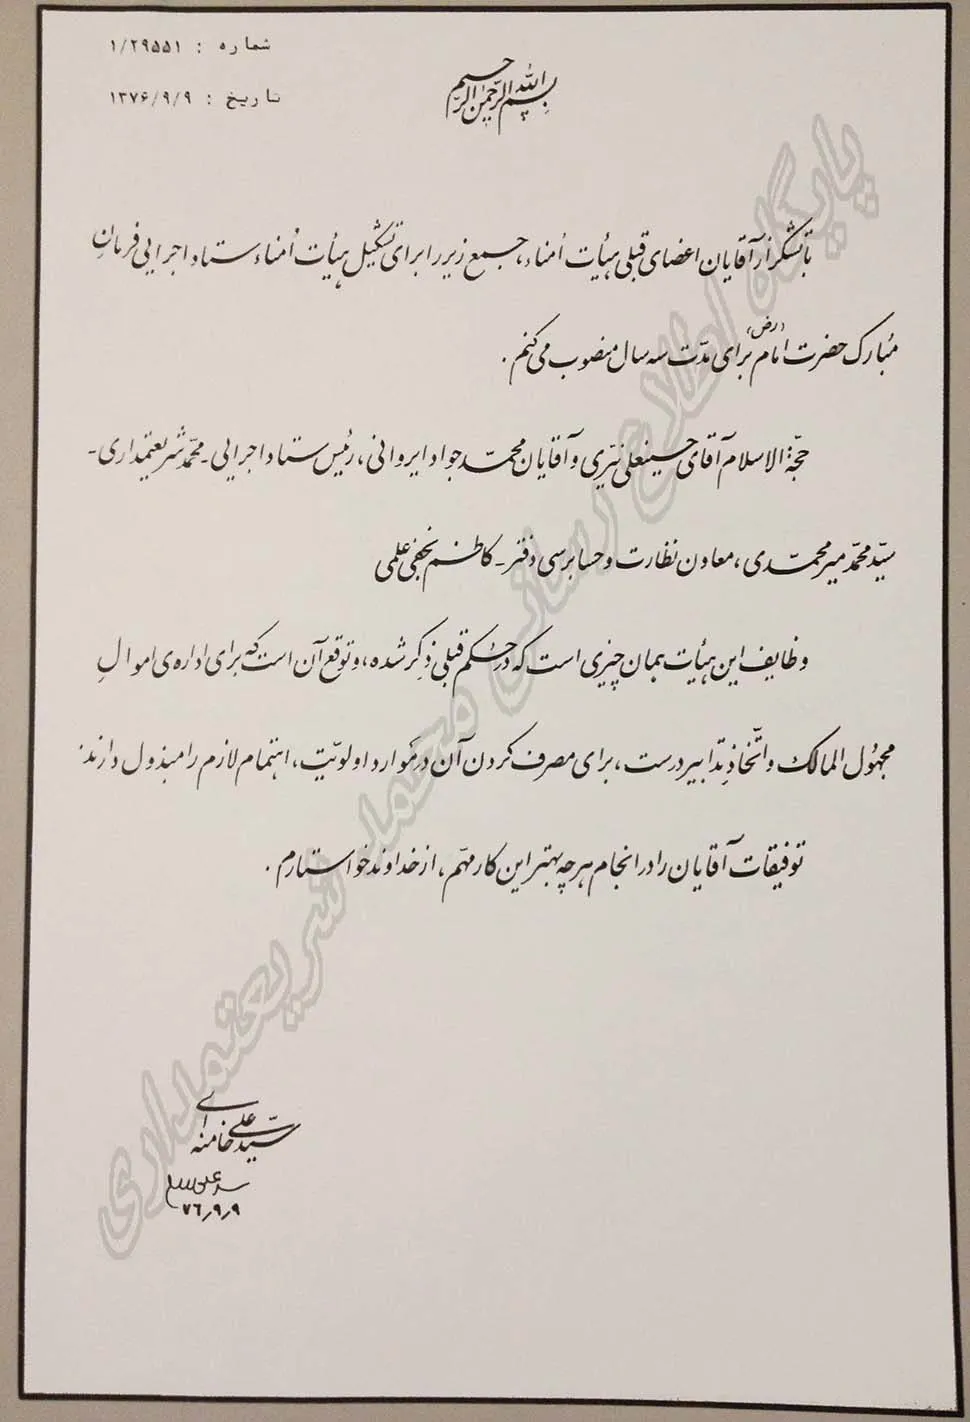 شماره : ۱/۲۹۵۵۱
تاریخ : ۱۳۷۶/۹/۹
بسم الله الرحمن الرحیم
با تشکر از آقایان اعضای قبلی هیأت اُمناء، جمع زیر را برای تشکیل هیأت اُمناء ستاد اجرایی فرمانِ
مُبارک حضرت امام (رض) برای مدّت سه سال منصوب می‌کنم.
حجّة الاسلام آقای حسینعلی نیّری و آقایان محمّد جواد ایروانی، رئیس ستاد اجرایی - محمّد شریعتمداری -
سیّد محمّد میرمحمّدی، معاون نظارت و حسابرسی دفتر - کاظم نجفی علمی
وظایف این هیأت همان چیزی است که در حُکم قبلی ذِکر شده، و توقع آن است که برای اداره‌ی اموالِ
مجهُول المالک و اتّخاذِ تدابیر درست، برای مصرف کردن آن در مَوارد اولویّت، اهتمام لازم را مبذول دارند.
توفیقات آقایان را در انجام هر چه بهتر این کار مهّم، از خداوند خواستارم.
سیّد علی خامنه‌ای
۷۶٫۹٫۹
پایگاه اطلاع رسانی محمد شریعتمداری